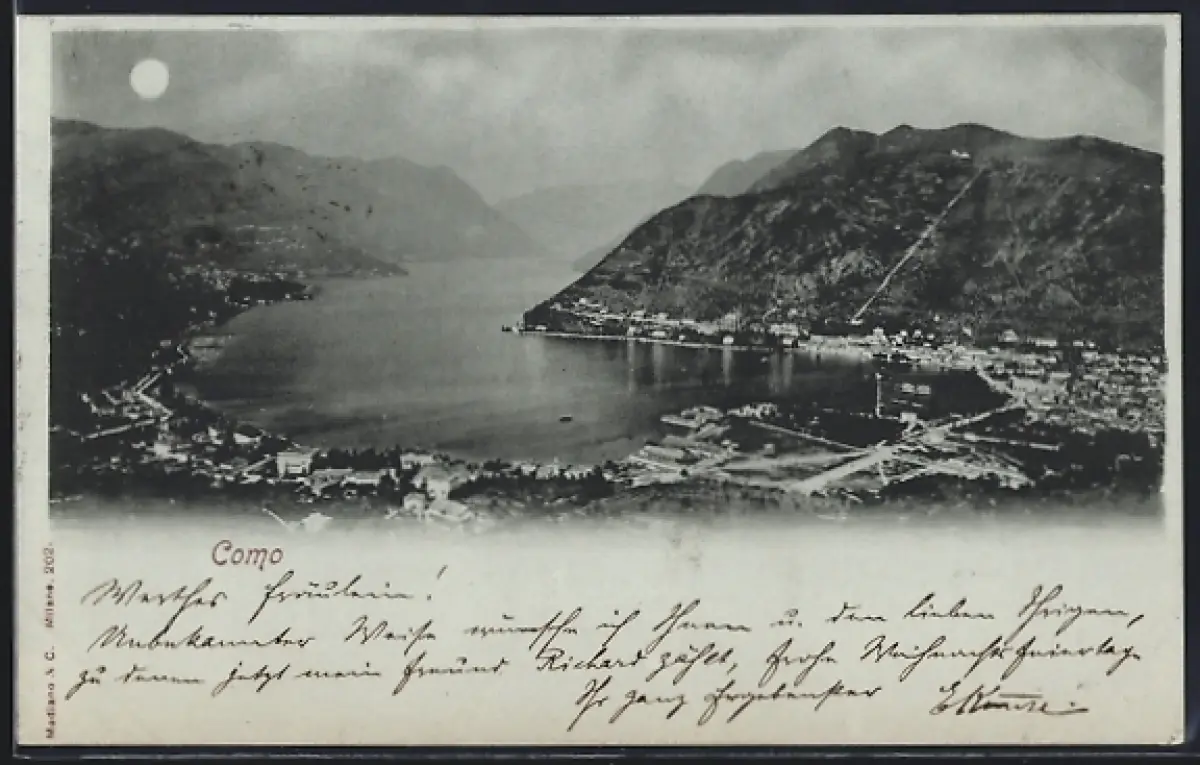 Como
Werthes Fräulein!
Unbekannter Weise wünsche ich Ihnen u. den lieben Ihrigen,
zu denen jetzt mein Freund Richard zählt, frohe Weihnachtsfeiertage
Ihr ganz Ergebenster
Modiano & C. Milano. 202.